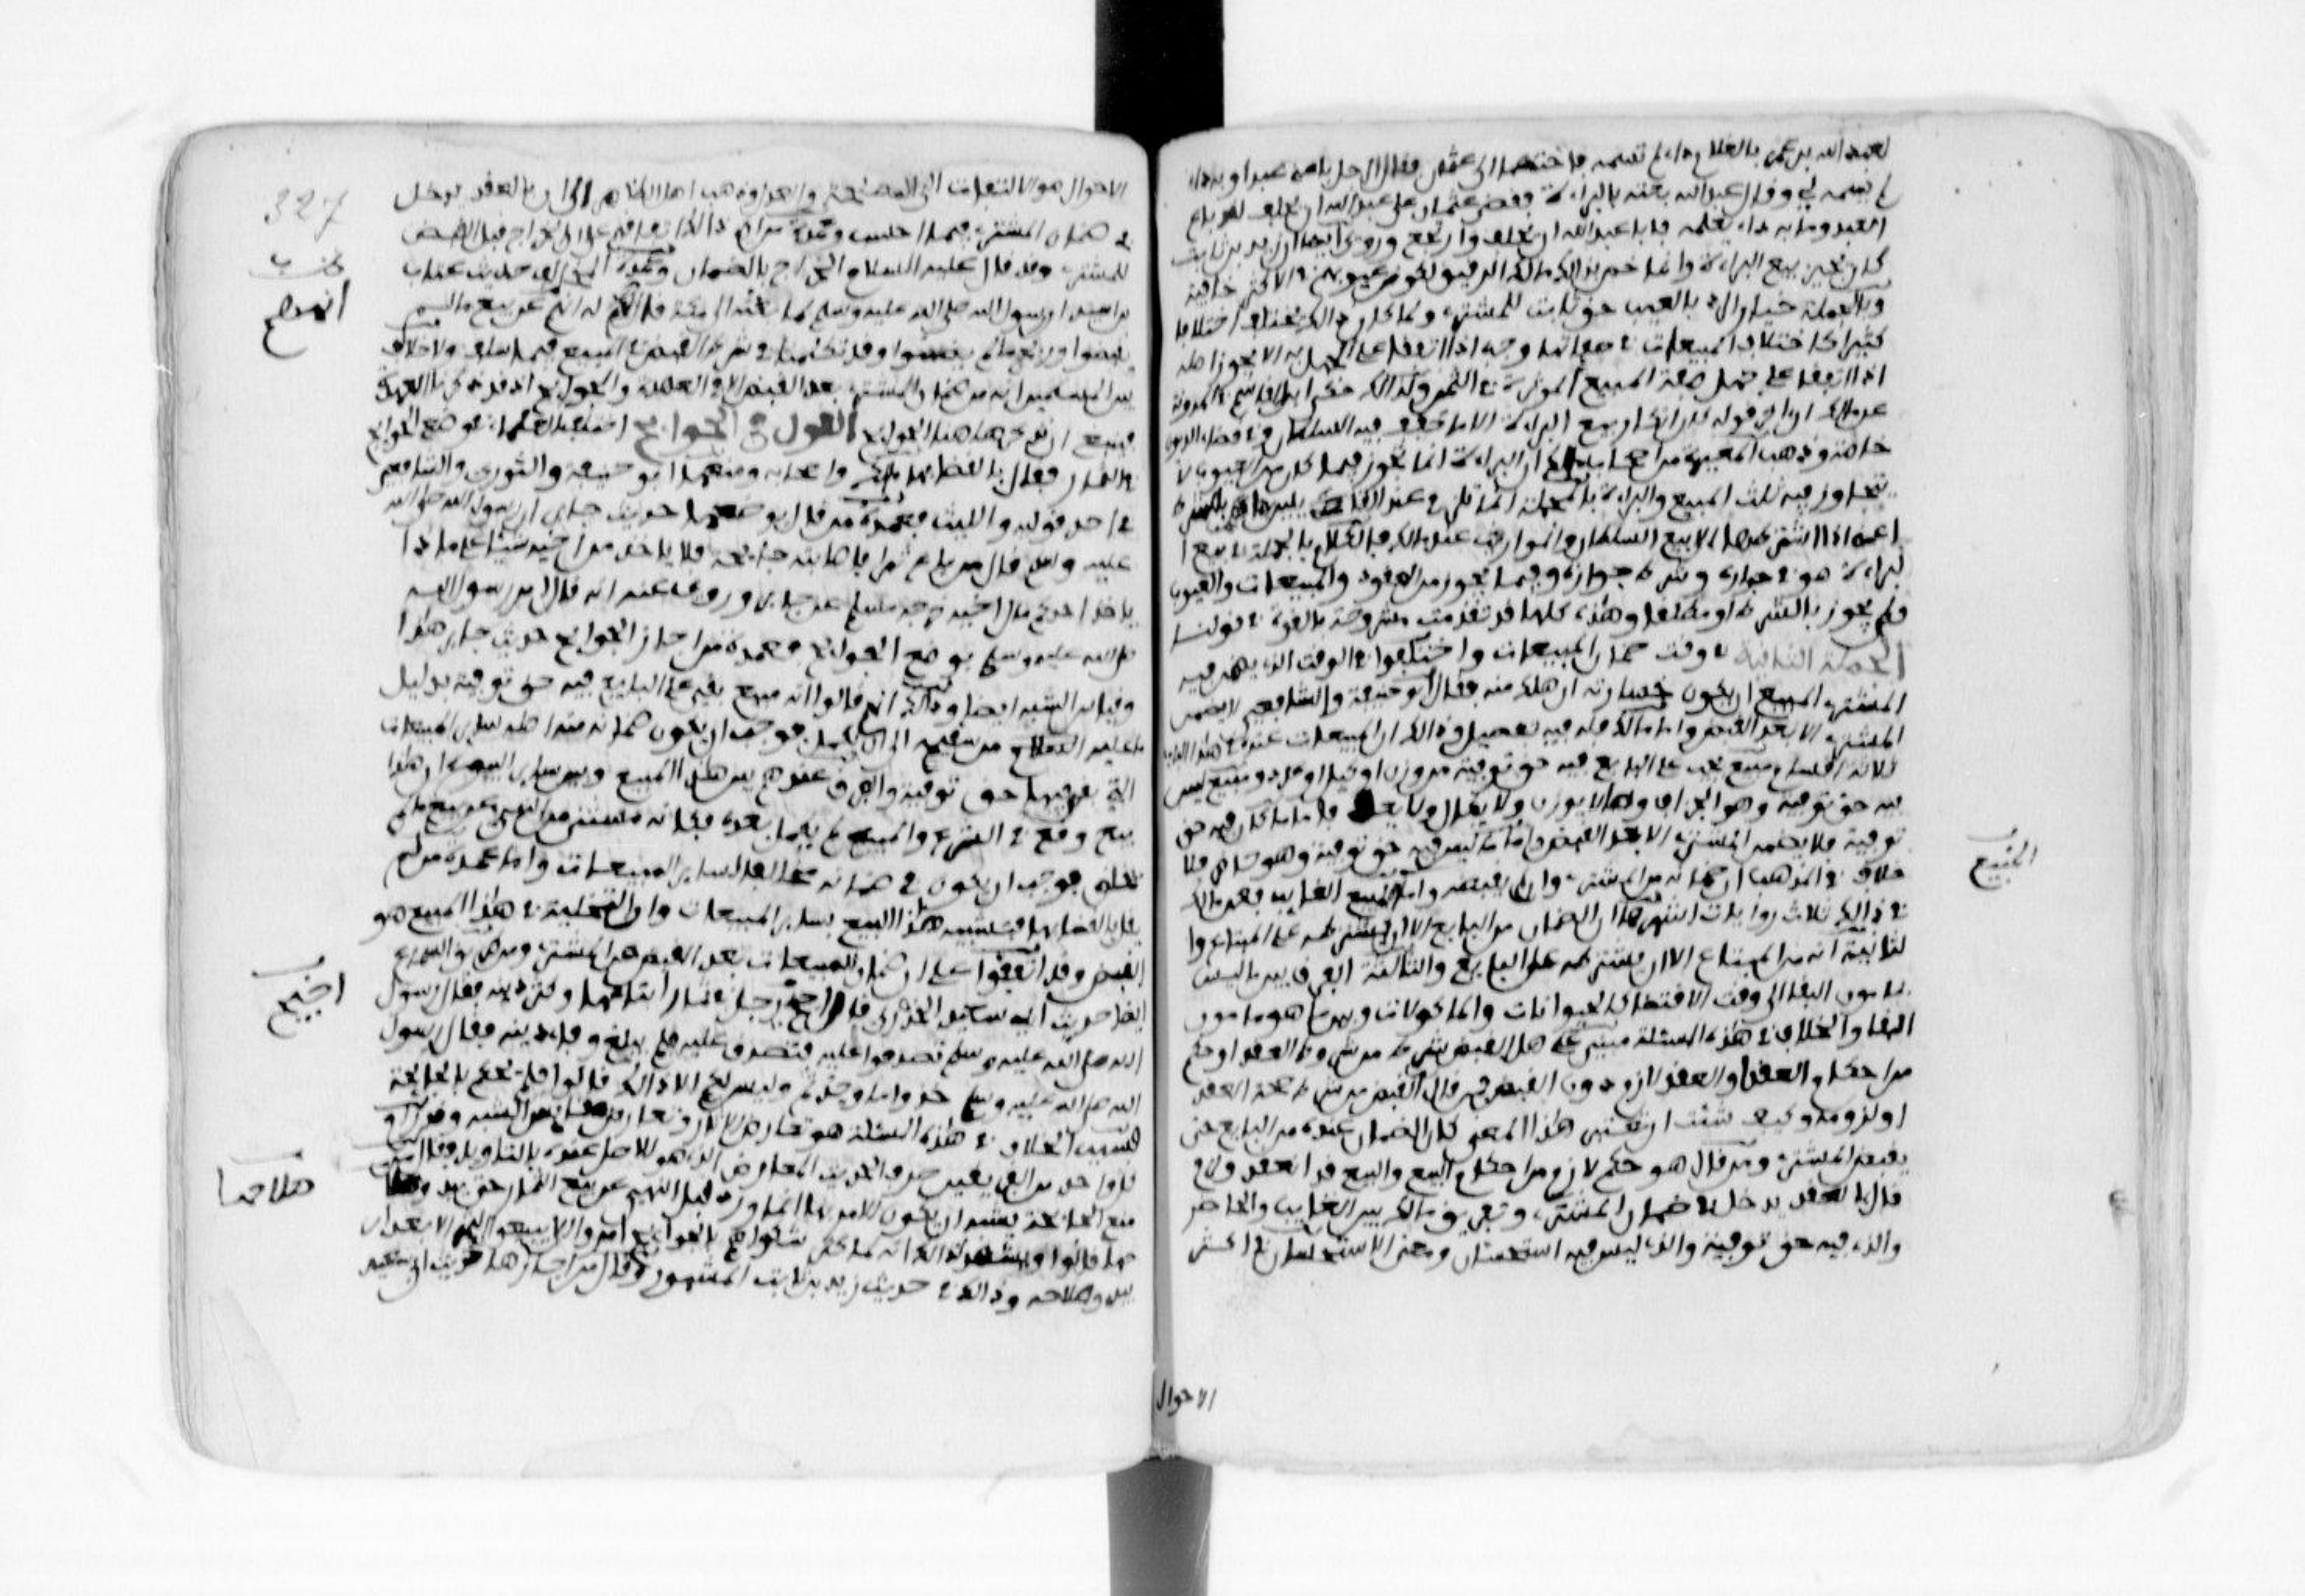 لعبد الله بن عمر بالغلام داء لم تسمه فاختصما الى عثمان فقال الرجل باعنى عبدا وبه داء
لم يسمه لي وقال عبد الله بعته بالبراءة فقضى عثمان على عبد الله ان يحلف لقد باع
العبد وما به داء يعلمه فابا عبد الله ان يحلف وارتجع وروي ايضا ان زيد بن ثابت
كان يجيز بيع البراءة وانما خص بذلك مالك الرقيق لكون عيوبهم في الاكثر خافية
وبالجملة خيار الرد بالعيب حق ثابت للمشتري ولما كان ذالك يختلف اختلافا
كثيرا كاختلاف المبيعات في صفاتها وجب اذا اتفقا على الجهل به الا يجوز اصله
اذا اتفقا على جهل صفة المبيع الموثرة في الثمن ولذالك حكى ابن القاسم في المدونة
عن مالك ان اخر قوله كان انكار بيع البراءة الا ما خفف فيه السلطان وفي قضاء الديون
خاصة وذهب المغيرة من اصحاب مالك الى ان البراءة انما تجوز فيما كان من العيوب لا
يتجاوز فيه ثلث المبيع والبراءة بالجملة انما تلزم عند القايلين بالشرط
اعنى اذا اشترطها الا بيع السلطان والمواريث عند مالك فالكلام بالجملة في بيع ا
لبراءة هو في جوازه وشرط جوازه وفيما يجوز من العقود والمبيعات والعيوب
ولم يجوز بالشرط او مطلقا وهذه كلها قد تقدمت مشروحة بالقوة في قولنا
الجملة الثانية في وقت ضمان المبيعات واختلفوا في الوقت الذي يضمن فيه
المشتري المبيع ان يكون خسارته ان هلك منه فقال ابو حنيفة والشافعي لا يضمن
المشتري الا بعد القبض واما مالك فله فيه تفصيل وذالك ان المبيعات عنده في هذا الباب
ثلاثة اقسام مبيع يجب على البايع فيه حق توفية من وزن او كيل او عدد ومبيع ليس
فيه حق توفية وهو الجزاف وما لا يوزن ولا يكال ولا يعد فاما ما كان فيه حق
توفية فلا يضمن المشتري الا بعد القبض واما ما ليس فيه حق توفية وهو حاضر فلا
خلاف في المذهب ان ضمانه من المشتري وان لم يقبضه واما المبيع الغايب فعن مالك
في ذالك ثلاث روايات اشهرها ان الضمان من البايع الا ان يشترطه على المبتاع وا
لثانية انه من المبتاع الا ان يشترطه على البايع والثالثة الفرق بين ما ليس
بمامون البقا الى وقت الاقتضا كالحيوانات والماكولات وبين ما هو مامون
البقا والخلاف في هذه المسئلة مبنى على هل القبض شرط من شروط العقد او حكم
من احكام العقد والعقد لازم دون القبض فمن قال القبض من شرط صحة العقد
او لزومه وكيف شئت ان تعتبر هذا المعنى كان الضمان عنده من البايع حتى
يقبض المشتري ومن قال هو حكم لازم من احكام البيع والبيع قد انعقد ولزم
قال العقد يدخل في ضمان المشتري وتفريق مالك بين الغايب والحاضر
والذي فيه حق توفية والذي ليس فيه استحسان ومعنى الاستحسان في اكثر
المبيع
الاحوال
الاحوال هو الالتفات الى المصلحة والعدل وذهب اهل الظاهر الى ان بالعقد يدخل
في ضمان المشتري فيما احسب وعمدة من راى ذالك اتفاقهم على ان الخراج قبل القبض
للمشتري وقد قال عليه السلام الخراج بالضمان وعمدة المخالف حديث عتاب
بن اسيد ان رسول الله صلى الله عليه وسلم لما بعثه الى مكة قال له انهم عن بيع ما لم
يقبضوا وربح ما لم يضمنوا وقد تكلمنا في شرط القبض في المبيع فيما سلف ولا خلاف
بين المسلمين انه من ضمان المشتري بعد القبض الا في العهدة والجوايح واذ قد ذكرنا العهدة
فينبغي ان نذكر هاهنا الجوايح القول في الجوايح اختلف العلماء في وضع الجوايح
في الثمار فقال بالقضا بها مالك واصحابه ومنعها ابو حنيفة والثوري والشافعي
في احد قوليه والليث فعمدة من قال بوضعها حديث جابر ان رسول الله صلى الله
عليه وسلم قال من باع ثمرا فاصابته جايحة فلا ياخذ من اخيه شيئا على ماذا
ياخذ احدكم مال اخيه خرجه مسلم عن جابر وروي عنه انه قال امر رسول الله
صلى الله عليه وسلم بوضع الجوايح فعمدة من اجاز الجوايح حديث جابر هذا
وقياس الشبه ايضا وذالك انهم قالوا انه مبيع بقي على البايع فيه حق توفية بدليل
ما عليه من سقيه الى ان يكمل فوجب ان يكون ضمانه منه اصله ساير المبيعات
التي بقي فيها حق توفية والفرق عندهم بين هذا المبيع وبين ساير البيوع ان هذا
بيع وقع في الشرع والمبيع لم يكمل بعد فكانه مستثنى من النهي عن بيع ما لم
يخلق فوجب ان يكون في ضمانه مخالفا لساير المبيعات واما عمدة من لم
يقل بالقضا بها فتشبيه هذا البيع بساير المبيعات وان التخلية في هذا المبيع هو
القبض وقد اتفقوا على ان ضمان المبيعات بعد القبض من المشتري ومن طريق السماع
ايضا حديث ابي سعيد الخدري قال اجيح رجل في ثمار ابتاعها وكثر دينه فقال رسول
الله صلى الله عليه وسلم تصدقوا عليه فتصدق عليه فلم يبلغ وفاء دينه فقال رسول
الله صلى الله عليه وسلم خذوا ما وجدتم وليس لكم الا ذالك قالوا فلم يحكم بالجايحة
فسبب الخلاف في هذه المسئلة هو تعارض الاثار وتعارض مقاييس الشبه وقد رام
كل واحد من الفريقين صرف الحديث المعارض الذي هو للاصل عنده بالتاويل فقال من
منع الجايحة يشبه ان يكون الامر بها انما ورد قبل النهي عن بيع الثمار حتى يبدو صلاحها
قالوا ويشهد لذالك انه لما كثر شكواهم بالجوايح امروا الا يبيعوا الثمر الا بعد ان
يبدو صلاحه وذالك في حديث زيد بن ثابت المشهور وقال من اجازها حديث ابي سعيد
327
انهم
اجيح
صلاحها